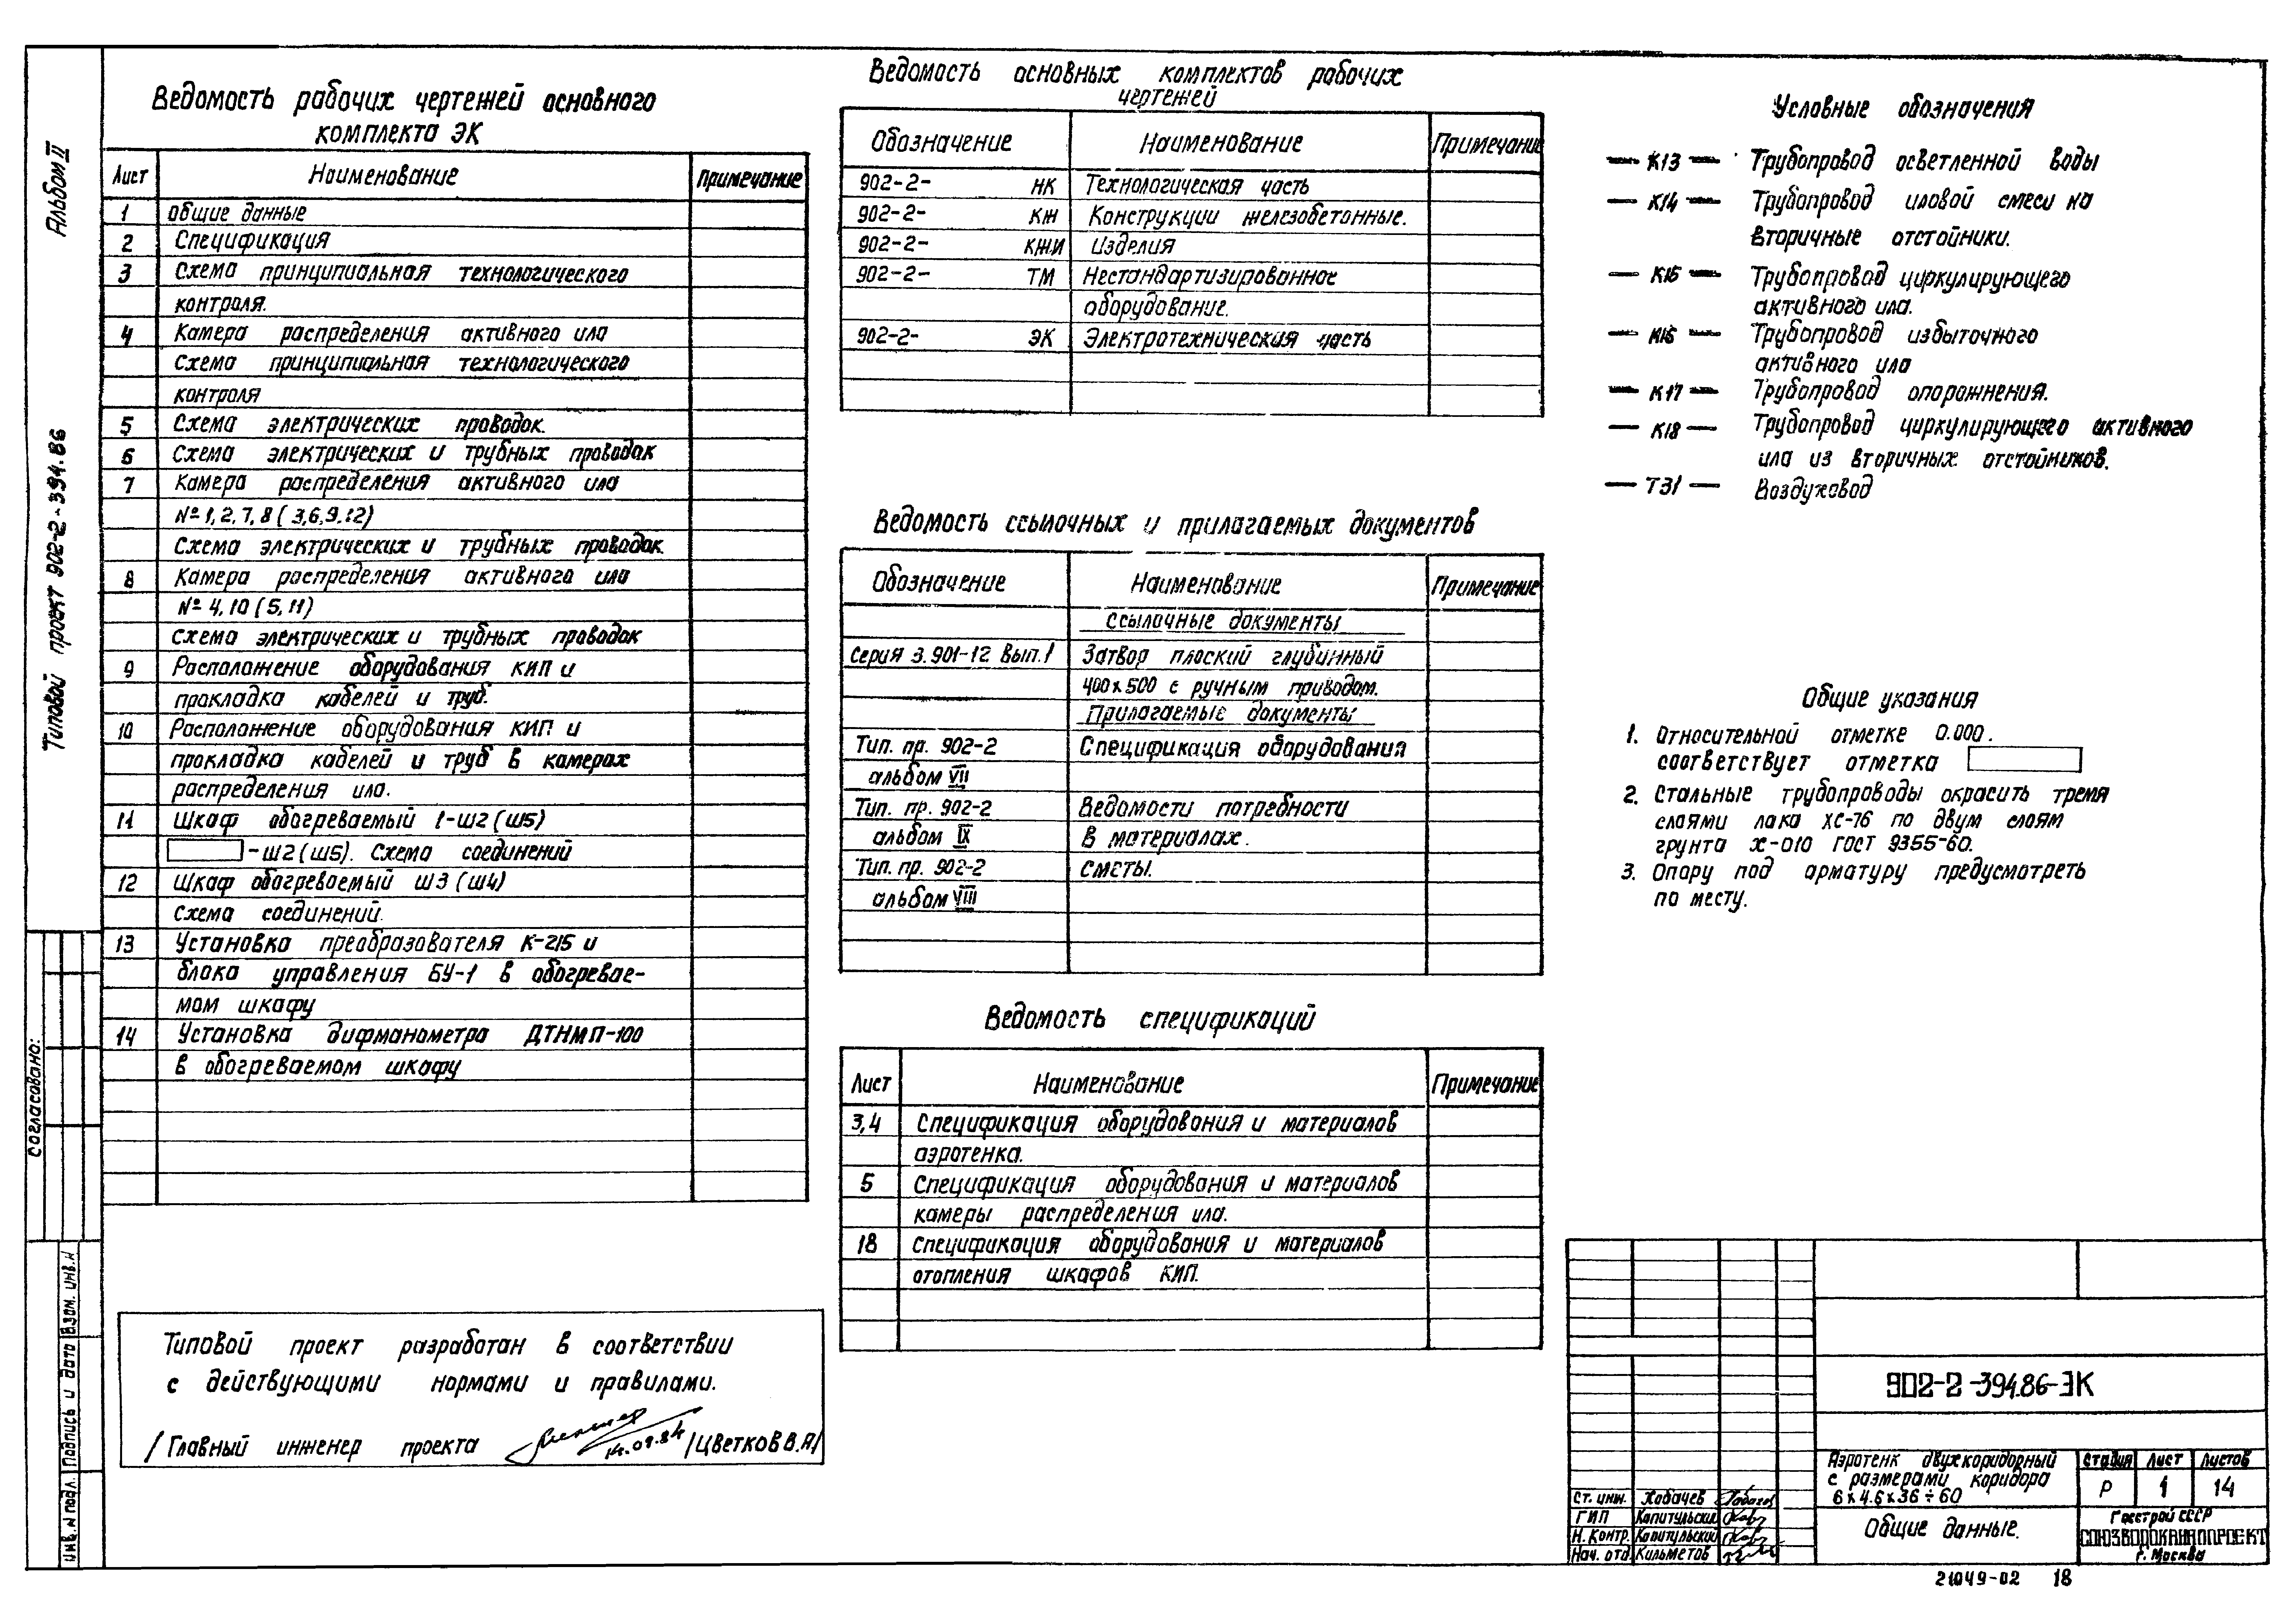 Альбом II
Типовой проект 902-2-394.86
Согласовано:
Инв. N подл.
Подпись и дата
Взам. инв. N
Ведомость рабочих чертежей основного
комплекта ЭК
Лист Наименование Примечание
1 Общие данные
2 Спецификация
3 Схема принципиальная технологического
контроля.
4 Камера распределения активного ила
Схема принципиальная технологического
контроля
5 Схема электрических проводок.
6 Схема электрических и трубных проводок
7 Камера распределения активного ила
№ 1, 2, 7, 8 (3,6,9,12)
Схема электрических и трубных проводок.
8 Камера распределения активного ила
№ 4, 10 (5, 11)
Схема электрических и трубных проводок
9 Расположение оборудования КИП и
прокладка кабелей и труб.
10 Расположение оборудования КИП и
прокладка кабелей и труб в камерах
распределения ила.
11 Шкаф обогреваемый 1-Ш2 (Ш5)
-Ш2 (Ш5). Схема соединений
12 Шкаф обогреваемый Ш3 (Ш4)
Схема соединений.
13 Установка преобразователя К-215 и
блока управления БУ-1 в обогревае-
мом шкафу
14 Установка дифманометра ДТНМП-100
в обогреваемом шкафу
Типовой проект разработан в соответствии
с действующими нормами и правилами.
/Главный инженер проекта 14.09.84 /Цветков В.А/
Ведомость основных комплектов рабочих
чертежей
Обозначение Наименование Примечание
902-2- НК Технологическая часть
902-2- КЖ Конструкции железобетонные.
902-2- КЖИ Изделия
902-2- ТМ Нестандартизированное
оборудование.
902-2- ЭК Электротехническая часть
Ведомость ссылочных и прилагаемых документов
Обозначение Наименование Примечание
Ссылочные документы
Серия 3.901-12 Вып.1 Затвор плоский глубинный
400х500 с ручным приводом.
Прилагаемые документы
Тип. пр. 902-2 Спецификация оборудования
альбом VII
Тип. пр. 902-2 Ведомости потребности
альбом IX в материалах.
Тип. пр. 902-2 Сметы.
альбом VIII
Ведомость спецификаций
Лист Наименование Примечание
3,4 Спецификация оборудования и материалов
аэротенка.
5 Спецификация оборудования и материалов
камеры распределения ила.
18 Спецификация оборудования и материалов
отопления шкафов КИП.
Условные обозначения
— К13 — Трубопровод осветленной воды
— К14 — Трубопровод иловой смеси на
вторичные отстойники.
— К15 — Трубопровод циркулирующего
активного ила.
— К16 — Трубопровод избыточного
активного ила
— К17 — Трубопровод опорожнения.
— К18 — Трубопровод циркулирующего активного
ила из вторичных отстойников.
— Т31 — Воздуховод
Общие указания
1. Относительной отметке 0.000.
соответствует отметка
2. Стальные трубопроводы окрасить тремя
слоями лака ХС-76 по двум слоям
грунта Х-010 ГОСТ 9355-60.
3. Опору под арматуру предусмотреть
по месту.
902-2-394.86-ЭК
Аэротенк двухкоридорный
с размерами коридора
6х4.6х36÷60
Стадия Лист Листов
Р 1 14
Общие данные.
Госстрой СССР
СОЮЗВОДОКАНАЛПРОЕКТ
г. Москва
Ст. инж. Хобачев
ГИП Капитульский
Н. Контр. Капитульский
Нач. отд. Кильметов
21049-02 18